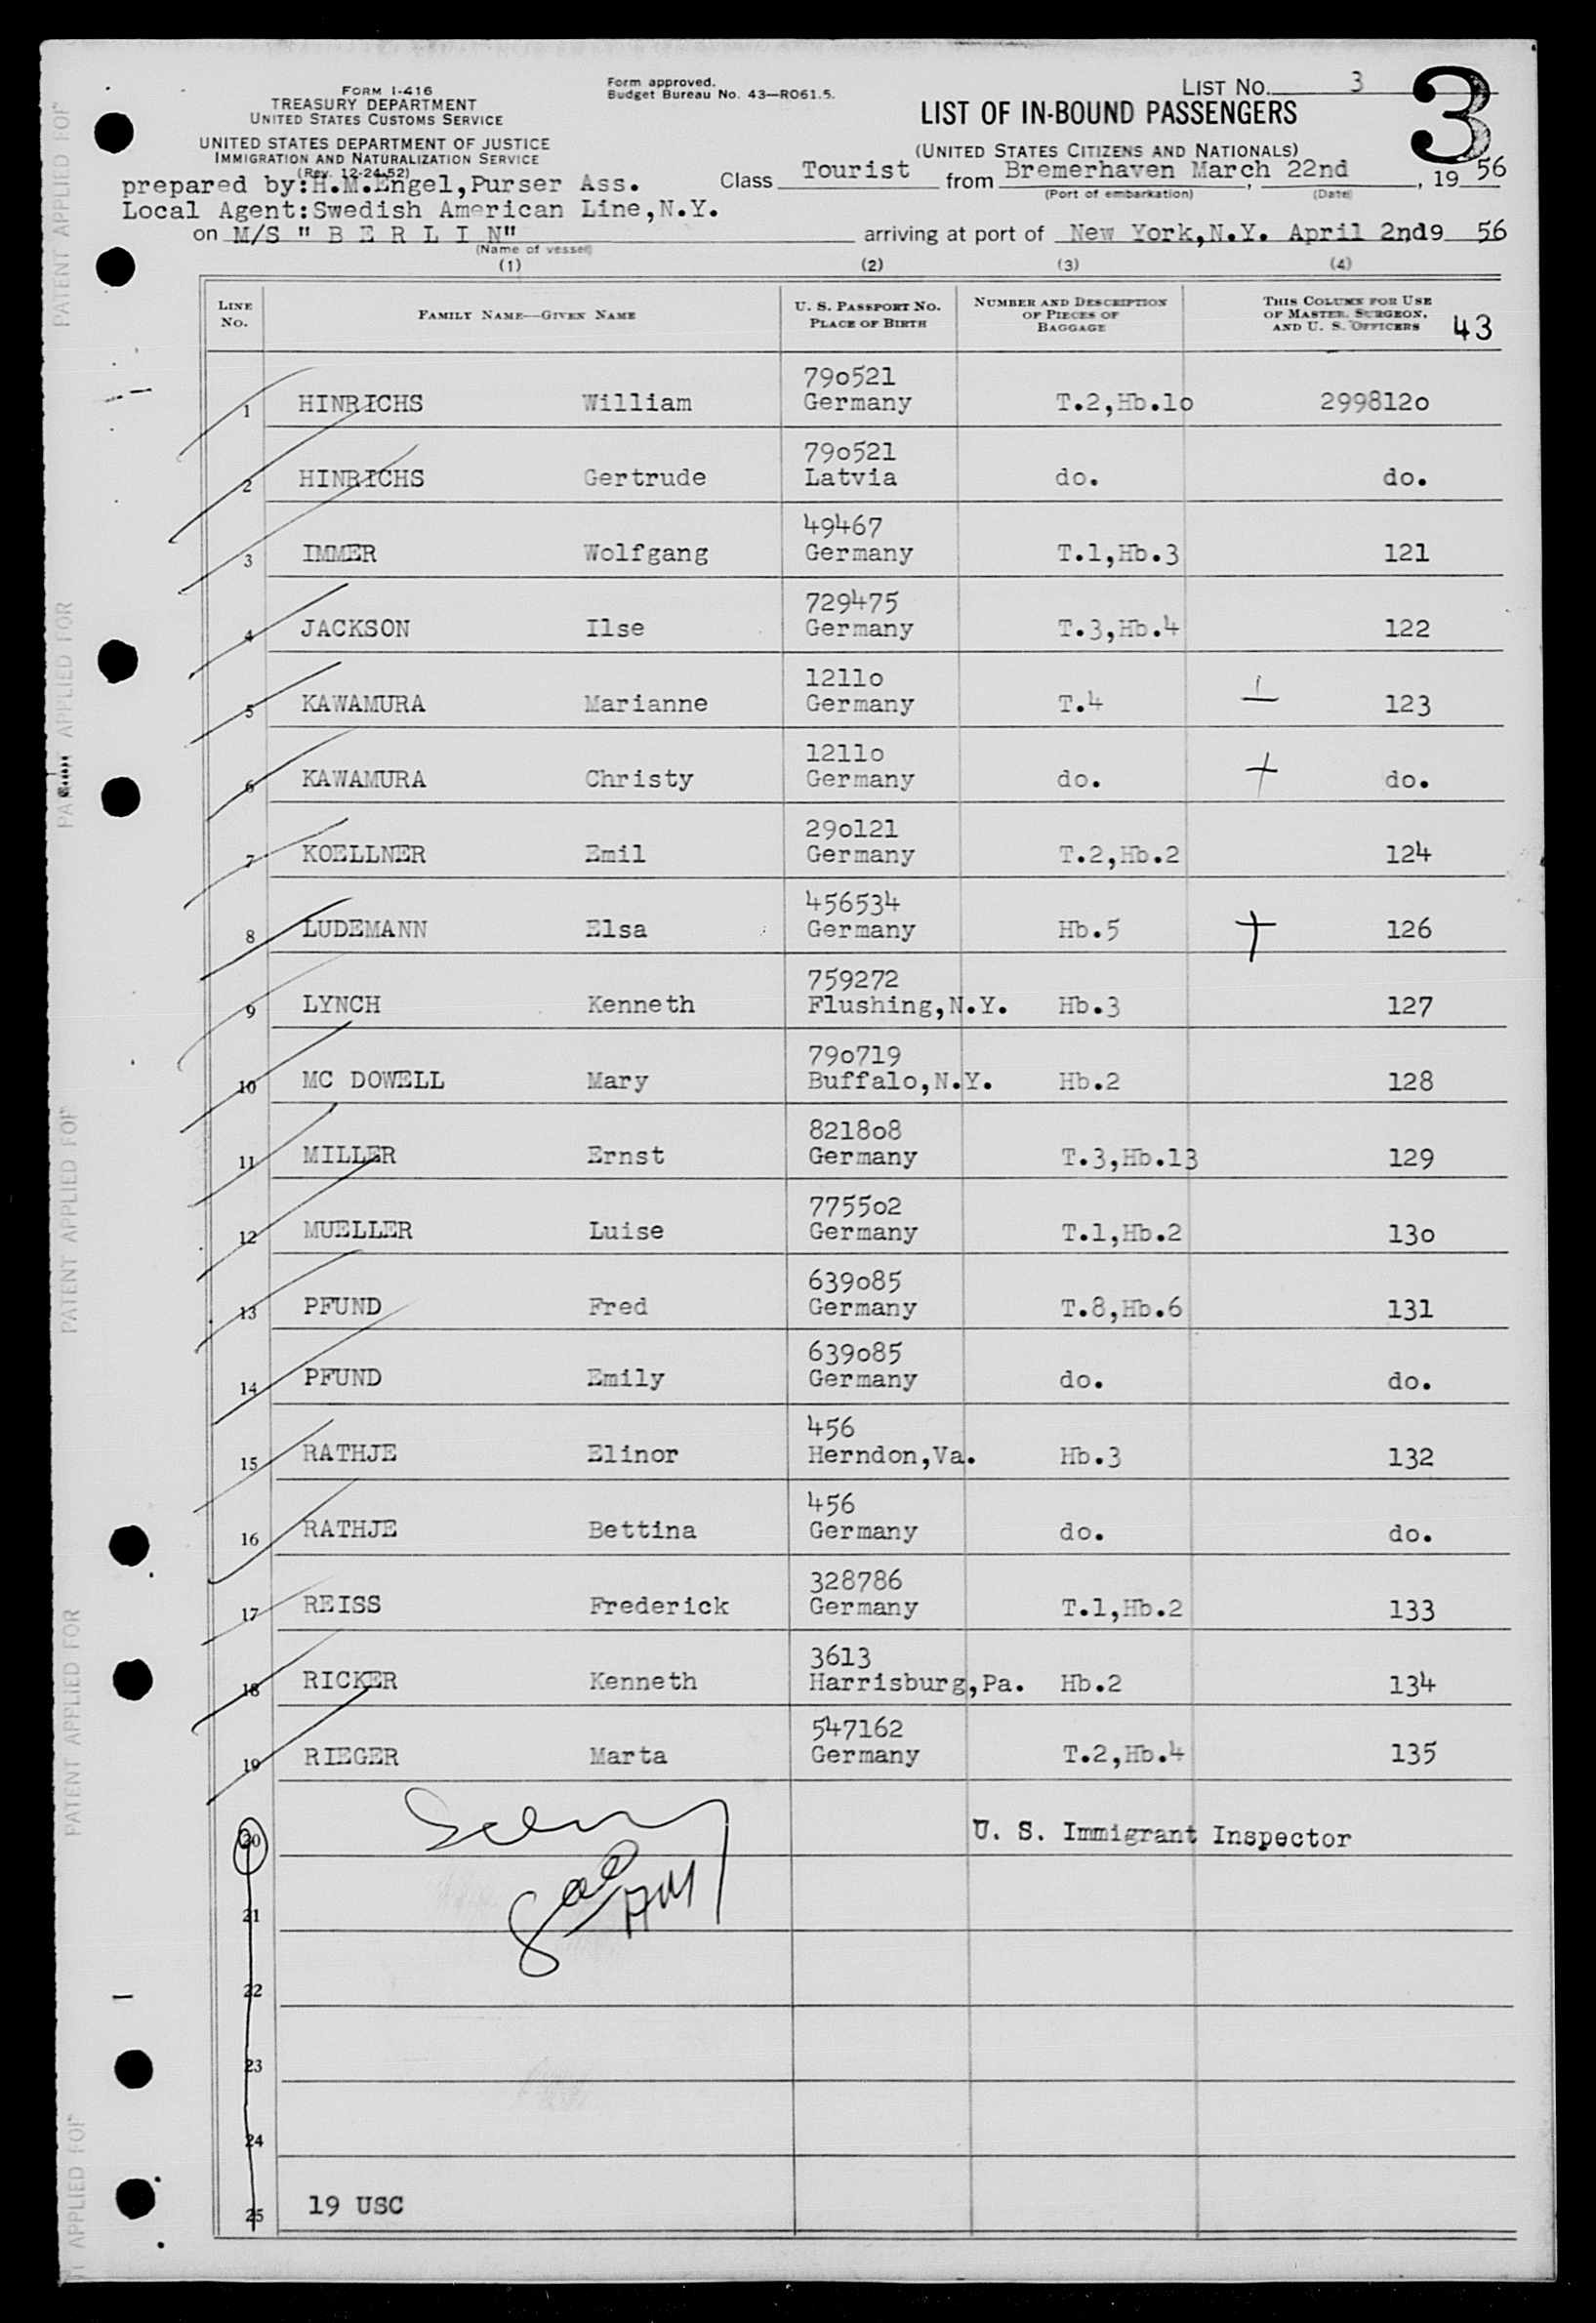 FORM I-416
TREASURY DEPARTMENT
UNITED STATES CUSTOMS SERVICE
UNITED STATES DEPARTMENT OF JUSTICE
IMMIGRATION AND NATURALIZATION SERVICE
(Rev. 12-24-52)
Form approved.
Budget Bureau No. 43—R061.5.
LIST NO. 3
3
LIST OF IN-BOUND PASSENGERS
(UNITED STATES CITIZENS AND NATIONALS)
prepared by:H.M.Engel,Purser Ass.
Class Tourist from Bremerhaven March 22nd, 19 56
(Port of embarkation) (Date)
Local Agent:Swedish American Line,N.Y.
on M/S " B E R L I N" arriving at port of New York,N.Y. April 2nd19 56
(Name of vessel)
(1) (2) (3) (4)
LINE NO. FAMILY NAME—GIVEN NAME U. S. PASSPORT NO. PLACE OF BIRTH NUMBER AND DESCRIPTION OF PIECES OF BAGGAGE THIS COLUMN FOR USE OF MASTER, SURGEON, AND U. S. OFFICERS 43
790521
1 HINRICHS William Germany T.2,Hb.10 2998120
790521
2 HINRICHS Gertrude Latvia do. do.
49467
3 IMMER Wolfgang Germany T.1,Hb.3 121
729475
4 JACKSON Ilse Germany T.3,Hb.4 122
12110
5 KAWAMURA Marianne Germany T.4 123
12110
6 KAWAMURA Christy Germany do. + do.
290121
7 KOELLNER Emil Germany T.2,Hb.2 124
456534
8 LUDEMANN Elsa Germany Hb.5 + 126
759272
9 LYNCH Kenneth Flushing,N.Y. Hb.3 127
790719
10 MC DOWELL Mary Buffalo,N.Y. Hb.2 128
821808
11 MILLER Ernst Germany T.3,Hb.13 129
775502
12 MUELLER Luise Germany T.1,Hb.2 130
639085
13 PFUND Fred Germany T.8,Hb.6 131
639085
14 PFUND Emily Germany do. do.
456
15 RATHJE Elinor Herndon,Va. Hb.3 132
456
16 RATHJE Bettina Germany do. do.
328786
17 REISS Frederick Germany T.1,Hb.2 133
3613
18 RICKER Kenneth Harrisburg,Pa. Hb.2 134
547162
19 RIEGER Marta Germany T.2,Hb.4 135
20 U. S. Immigrant Inspector
21
22
23
24
25 19 USC
PATENT APPLIED FOR
PATENT APPLIED FOR
PATENT APPLIED FOR
PATENT APPLIED FOR
APPLIED FOR